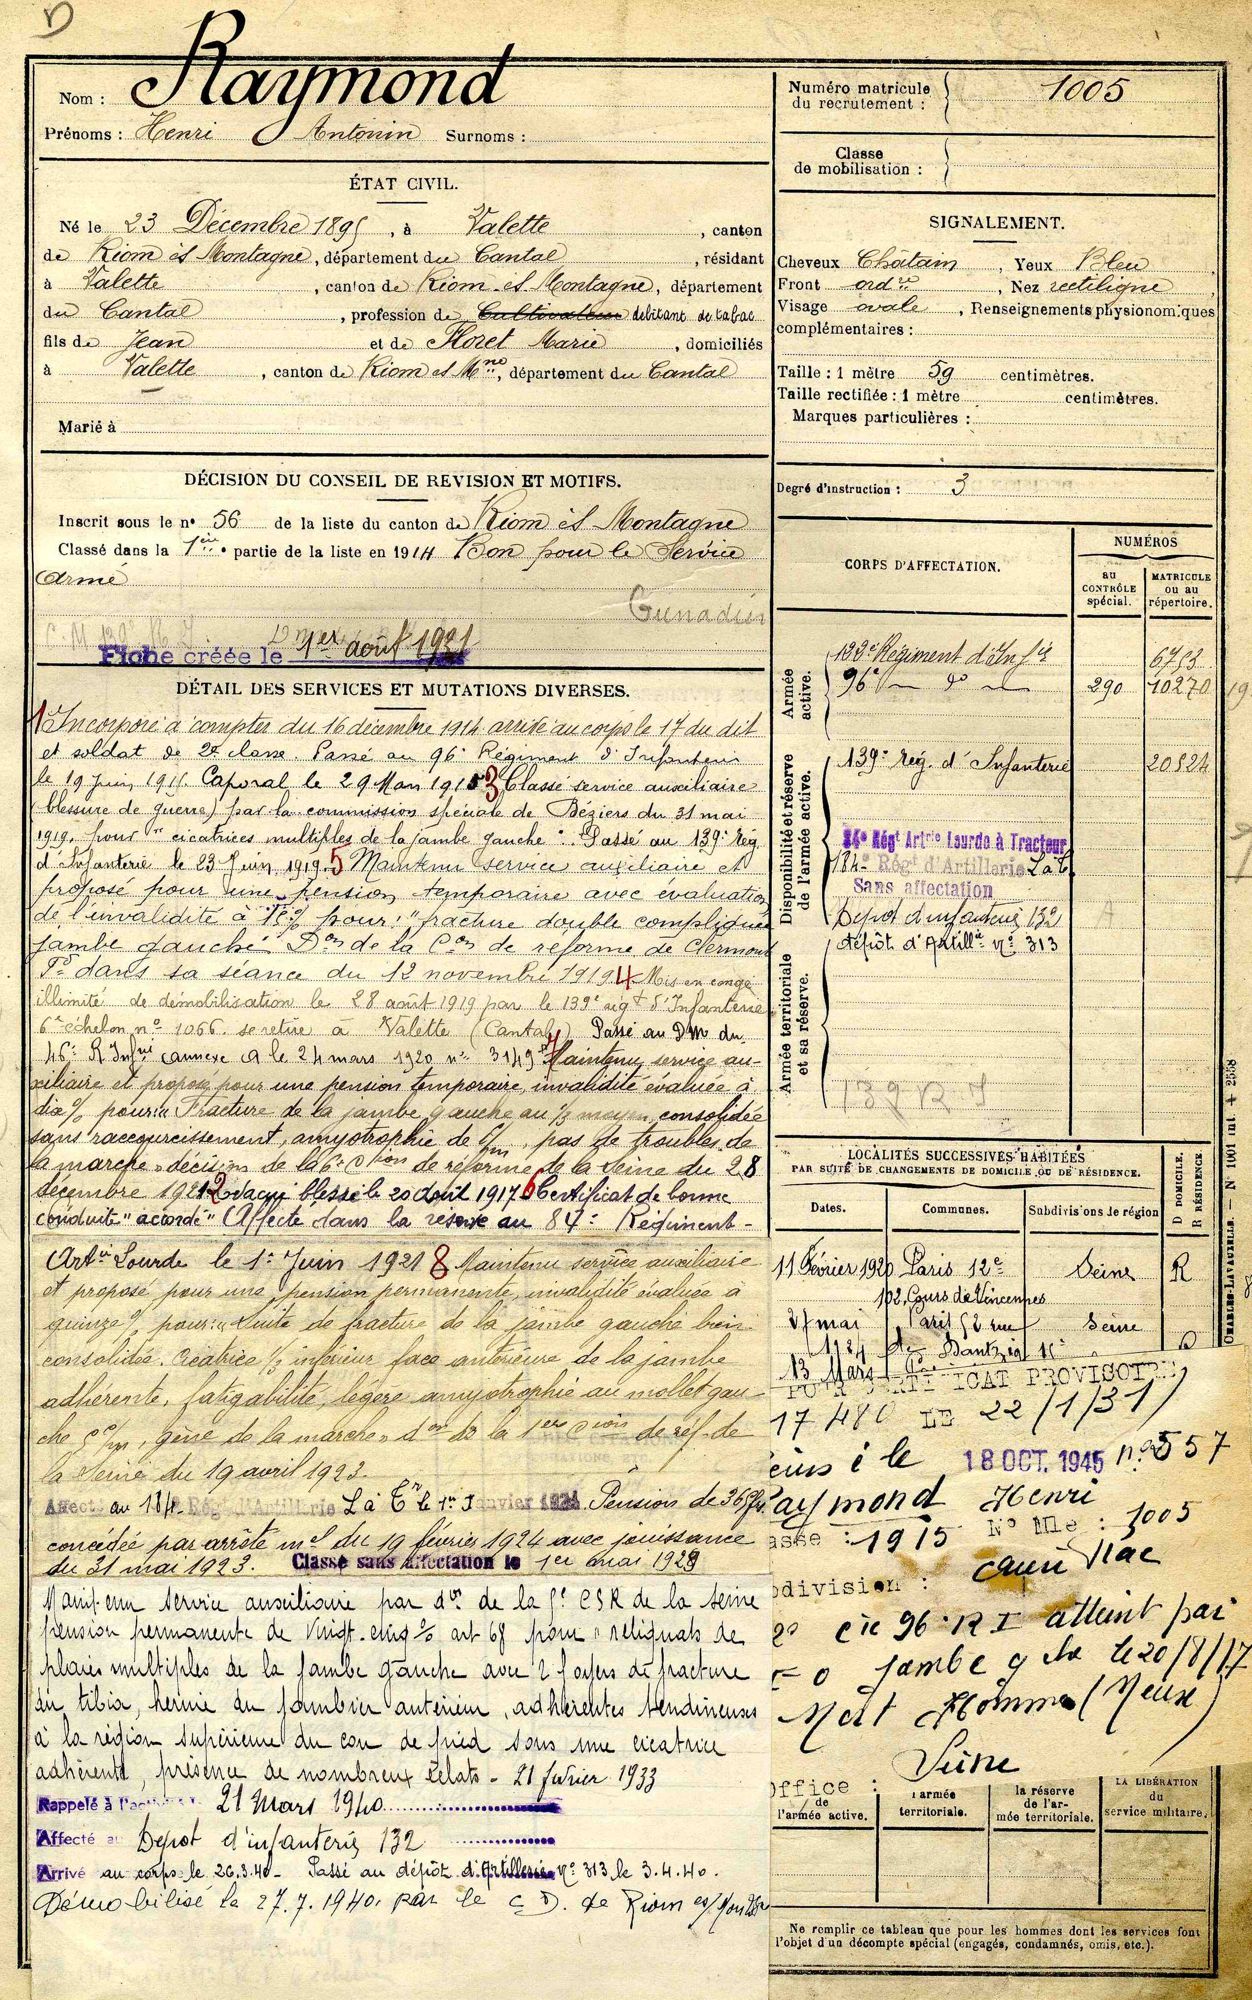 D
Nom : Raymond
Prénoms : Henri Antonin Surnoms :
ÉTAT CIVIL.
Né le 23 Décembre 1895, à Valette, canton
de Riom ès Montagne, département du Cantal, résidant
à Valette, canton de Riom-ès-Montagne, département
du Cantal, profession de Cultivateur débitant de tabac
fils de Jean et de Floret Marie, domiciliés
à Valette, canton de Riom ès Mgne, département du Cantal
Marié à
DÉCISION DU CONSEIL DE REVISION ET MOTIFS.
Inscrit sous le n° 56 de la liste du canton de Riom ès Montagne
Classé dans la 1ère partie de la liste en 1914 Bon pour le Service
Armé
Fiche créée le 1er août 1921
DÉTAIL DES SERVICES ET MUTATIONS DIVERSES.
1 Incorporé à compter du 16 décembre 1914 arrivé au corps le 17 du dit
et soldat de 2e classe. Passé au 96e Régiment d'Infanterie
le 19 Juin 1915. Caporal le 29 Mars 1915 3 Classé service auxiliaire
(blessure de guerre) par la commission spéciale de Béziers du 31 mai
1919, pour "cicatrices multiples de la jambe gauche". Passé au 139e Rég
d'Infanterie le 23 Juin 1919. 5 Maintenu service auxiliaire et
proposé pour une pension temporaire avec évaluation
de l'invalidité à % pour : "fracture double compliquée
jambe gauche" Don de la Con de réforme de Clermont
Fd dans sa séance du 12 novembre 1919 4 Mis en congé
illimité de démobilisation le 28 août 1919 par le 139e régt d'Infanterie
6e échelon n° 1066. se retire à Valette (Cantal) Passé au DM du
46e R Infrie annexe A le 24 mars 1920 n° 3149 7 Maintenu service au-
xiliaire et proposé pour une pension temporaire, invalidité évaluée à
dix % pour: "Fracture de la jambe gauche au 1/3 moyen, consolidée
sans raccourcissement, amyotrophie de cm, pas de troubles de
la marche" décision de la 6e Ction de réforme de la Seine du 28
décembre 1921 2 Evacué blessé le 20 août 1917 6 Certificat de bonne
conduite "accordé" Affecté dans la réserve au 84e Régiment
Artie Lourde le 1er Juin 1921 8 Maintenu service auxiliaire
et proposé pour une pension permanente, invalidité évaluée à
quinze % pour: "Suite de fracture de la jambe gauche bien
consolidée. Cicatrice 1/3 inférieur face antérieure de la jambe
adhérente, fatigabilité, légère amyotrophie au mollet gau-
che, gêne de la marche" don de la 1ère Cion de réf. de
la Seine du 19 avril 1923
Affecté au 184e Régt d'Artillerie L à Tr le 1er Janvier 1924. Pension de 360 frs
concédée par arrêté mel du 19 février 1924 avec jouissance
du 31 mai 1923. Classé sans affectation le 1er mai 1929
Maintenu service auxiliaire par don de la CSR de la Seine
pension permanente de Vingt-cinq % art 68 pour "reliquats de
plaies multiples de la jambe gauche avec 2 foyers de fracture
du tibia, hernie du jambier antérieur, adhérences tendineuses
à la région supérieure du cou de pied sous une cicatrice
adhérente, présence de nombreux éclats - 21 février 1933
Rappelé à l'activité le 21 Mars 1940
Affecté au Dépot d'infanterie 132
Arrivé au corps le 26.3.40 - Passé au dépôt d'Artillerie n° 313 le 3.4.40.
Démobilisé le 27.7.1940. par le C D. de Riom es/Montagne
Numéro matricule du recrutement : 1005
Classe de mobilisation :
SIGNALEMENT.
Cheveux Châtain, Yeux Bleu
Front ordre, Nez rectiligne
Visage ovale, Renseignements physionomiques
complémentaires :
Taille : 1 mètre 59 centimètres.
Taille rectifiée : 1 mètre centimètres.
Marques particulières :
Degré d'instruction : 3
CORPS D'AFFECTATION.
NUMÉROS
au CONTRÔLE spécial.
MATRICULE ou au répertoire.
Armée active.
122e Régiment d'Infie 6753
96e - do - 290 10270
Disponibilité et réserve de l'armée active.
139e Rég. d'Infanterie 20524
84e Régt Artrie Lourde à Tracteur
184e Régt d'Artillerie L à T
Sans affectation
Dépot d'infanterie 132
dépôt d'Artillie n° 313
Armée territoriale et sa réserve.
139 R I
LOCALITÉS SUCCESSIVES HABITÉES
PAR SUITE DE CHANGEMENTS DE DOMICILE OU DE RÉSIDENCE.
Dates. Communes. Subdivisions de région D DOMICILE. R RÉSIDENCE.
11 Février 1920 Paris 12e Seine R
102, Cours de Vincennes
27 mai 1924 Paris 52 rue de Dantzig 15e Seine
13 Mars
POUR CERTIFICAT PROVISOIRE
17 480 LE 22/1/31
le 18 OCT. 1945 n° 557
Raymond Henri
asse : 1915 N° Mle : 1005
bdivision : Aurillac
Cie 96 R I atteint par
jambe gche le 20/8/17
Mort Homme (Meuse)
Seine
Office :
de l'armée active.
l'armée territoriale.
la réserve de l'armée territoriale.
LA LIBÉRATION du service militaire.
Ne remplir ce tableau que pour les hommes dont les services font
l'objet d'un décompte spécial (engagés, condamnés, omis, etc.).
CHARLES-LAVAUZELLE. — N° 1001 int. + 2558